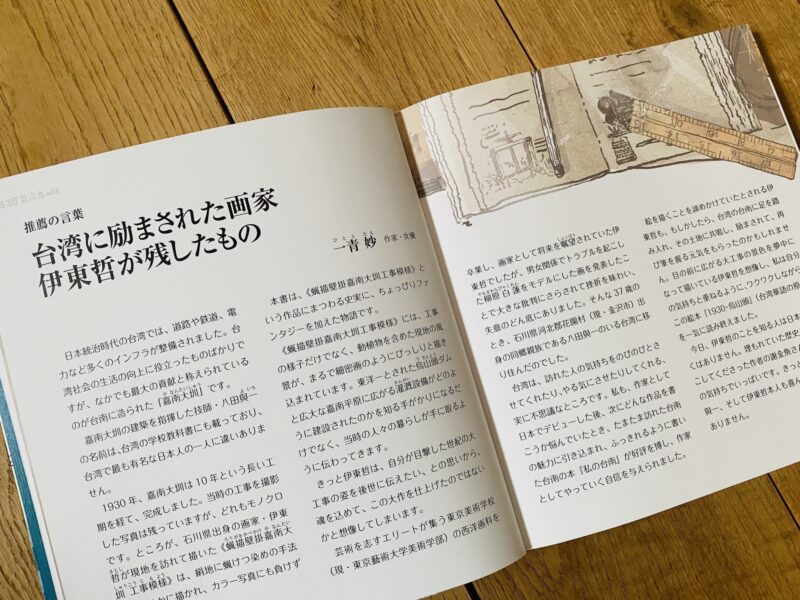 推薦の言葉
台湾に励まされた画家
伊東哲が残したもの
一青 妙 作家・女優
日本統治時代の台湾では、道路や鉄道、電
力など多くのインフラが整備されました。台
湾社会の生活の向上に役立ったものばかりで
すが、なかでも最大の貢献と称えられている
のが台南に造られた「嘉南大圳」です。
嘉南大圳の建築を指揮した技師・八田與一
の名前は、台湾の学校教科書にも載っており、
台湾で最も有名な日本人の一人に違いありま
せん。
1930年、嘉南大圳は10年という長い工
期を経て、完成しました。当時の工事を撮影
した写真は残っていますが、どれもモノクロ
です。ところが、石川県出身の画家・伊東
哲が現地を訪れて描いた《蝋描壁掛嘉南大
圳工事模様》は、絹地に蝋けつ染めの手法
かに描かれ、カラー写真にも負けず
本書は、《蝋描壁掛嘉南大圳工事模様》と
いう作品にまつわる史実に、ちょっぴりファ
ンタジーを加えた物語です。
《蝋描壁掛嘉南大圳工事模様》には、工事
の様子だけでなく、動植物を含めた現地の風
景が、まるで細密画のようにびっしりと描き
込まれています。東洋一とされた烏山頭ダム
と広大な嘉南平原に広がる灌漑設備がどのよ
うに建設されたのかを知る手がかりになるだ
けでなく、当時の人々の暮らしが手に取るよ
うに伝わってきます。
きっと伊東哲は、自分が目撃した世紀の大
工事の姿を後世に伝えたい、との思いから、
魂を込めて、この大作を仕上げたのではない
かと想像してしまいます。
芸術を志すエリートが集う東京美術学校
（現・東京藝術大学美術学部）の西洋画科を
卒業し、画家として将来を嘱望されていた伊
東哲でしたが、男女関係でトラブルを起こし
た柳原白蓮をモデルにした画を発表したこ
とで大きな批判にさらされて挫折を味わい、
失意のどん底にありました。そんな37歳の
とき、石川県河北郡花園村（現・金沢市）出
身の同郷親族である八田與一のいる台湾に移
り住んだのでした。
台湾は、訪れた人の気持ちをのびのびとさ
せてくれたり、やる気にさせたりしてくれる、
実に不思議なところです。私も、作家として
日本でデビューした後、次にどんな作品を書
こうか悩んでいたとき、たまたま訪れた台南
の魅力に引き込まれ、ふっきれるように書い
た台南の本『私の台南』が好評を博し、作家
としてやっていく自信を与えられました。
絵を描くことを諦めかけていたとされる伊
東哲も、もしかしたら、台湾の台南に足を踏
み入れ、その土地に共鳴し、励まされて、再
び筆を握る元気をもらったのかもしれませ
ん。目の前に広がる大工事の景色を夢中に
なって描いている伊東哲を想像し、私は自分
の気持ちと重ねるように、ワクワクしながら
この絵本『1930・烏山頭』（台湾華語の原
を一気に読み終えました。
今日、伊東哲のことを知る人は日本
くはありません。埋もれていた歴史
こしてくださった作者の謝金魚さん
の気持ちでいっぱいです。きっと
與一、そして伊東哲本人も喜ん
ありません。